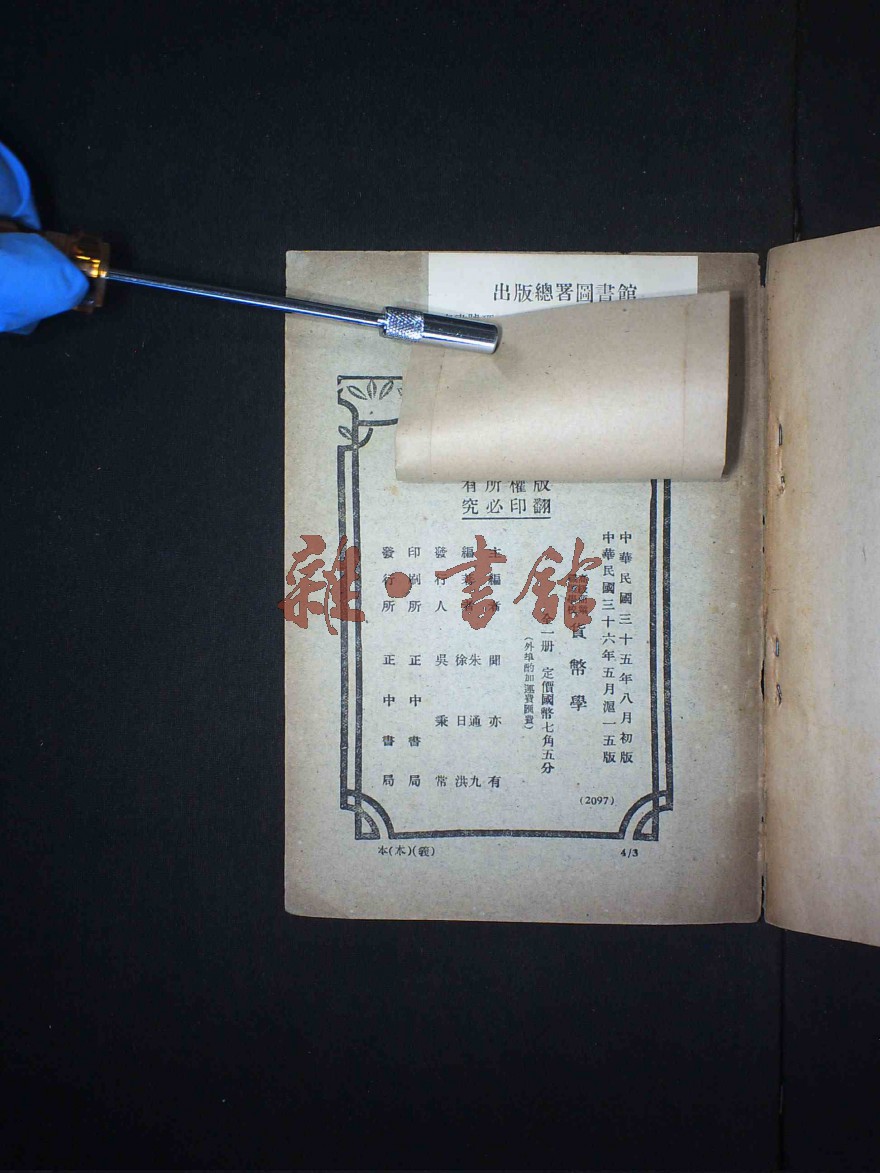 出版總署圖書館
版權所有
翻印必究
中華民國三十五年八月初版
中華民國三十六年五月滬一五版
貨幣學
全一册 定價國幣七角五分
(外埠酌加運費匯費)
主編者 聞亦有
編著者 朱通九 徐日洪
發行人 吳秉常
印刷所 正中書局
發行所 正中書局
(2097)
本(本)(義)
4/3
雜·書館